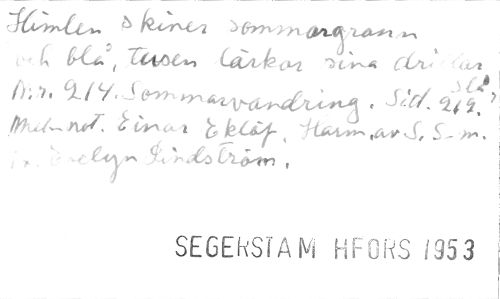 Himlen skiner sommargrann
och blå, tusen lärkor sina drillar
slå,
N:r. 214. Sommarvandring. Sid. 212.
not. Einar Eklöf. Harm. av S. S-m.
Evelyn Lindström.
SEGERSTAM HFORS 1953